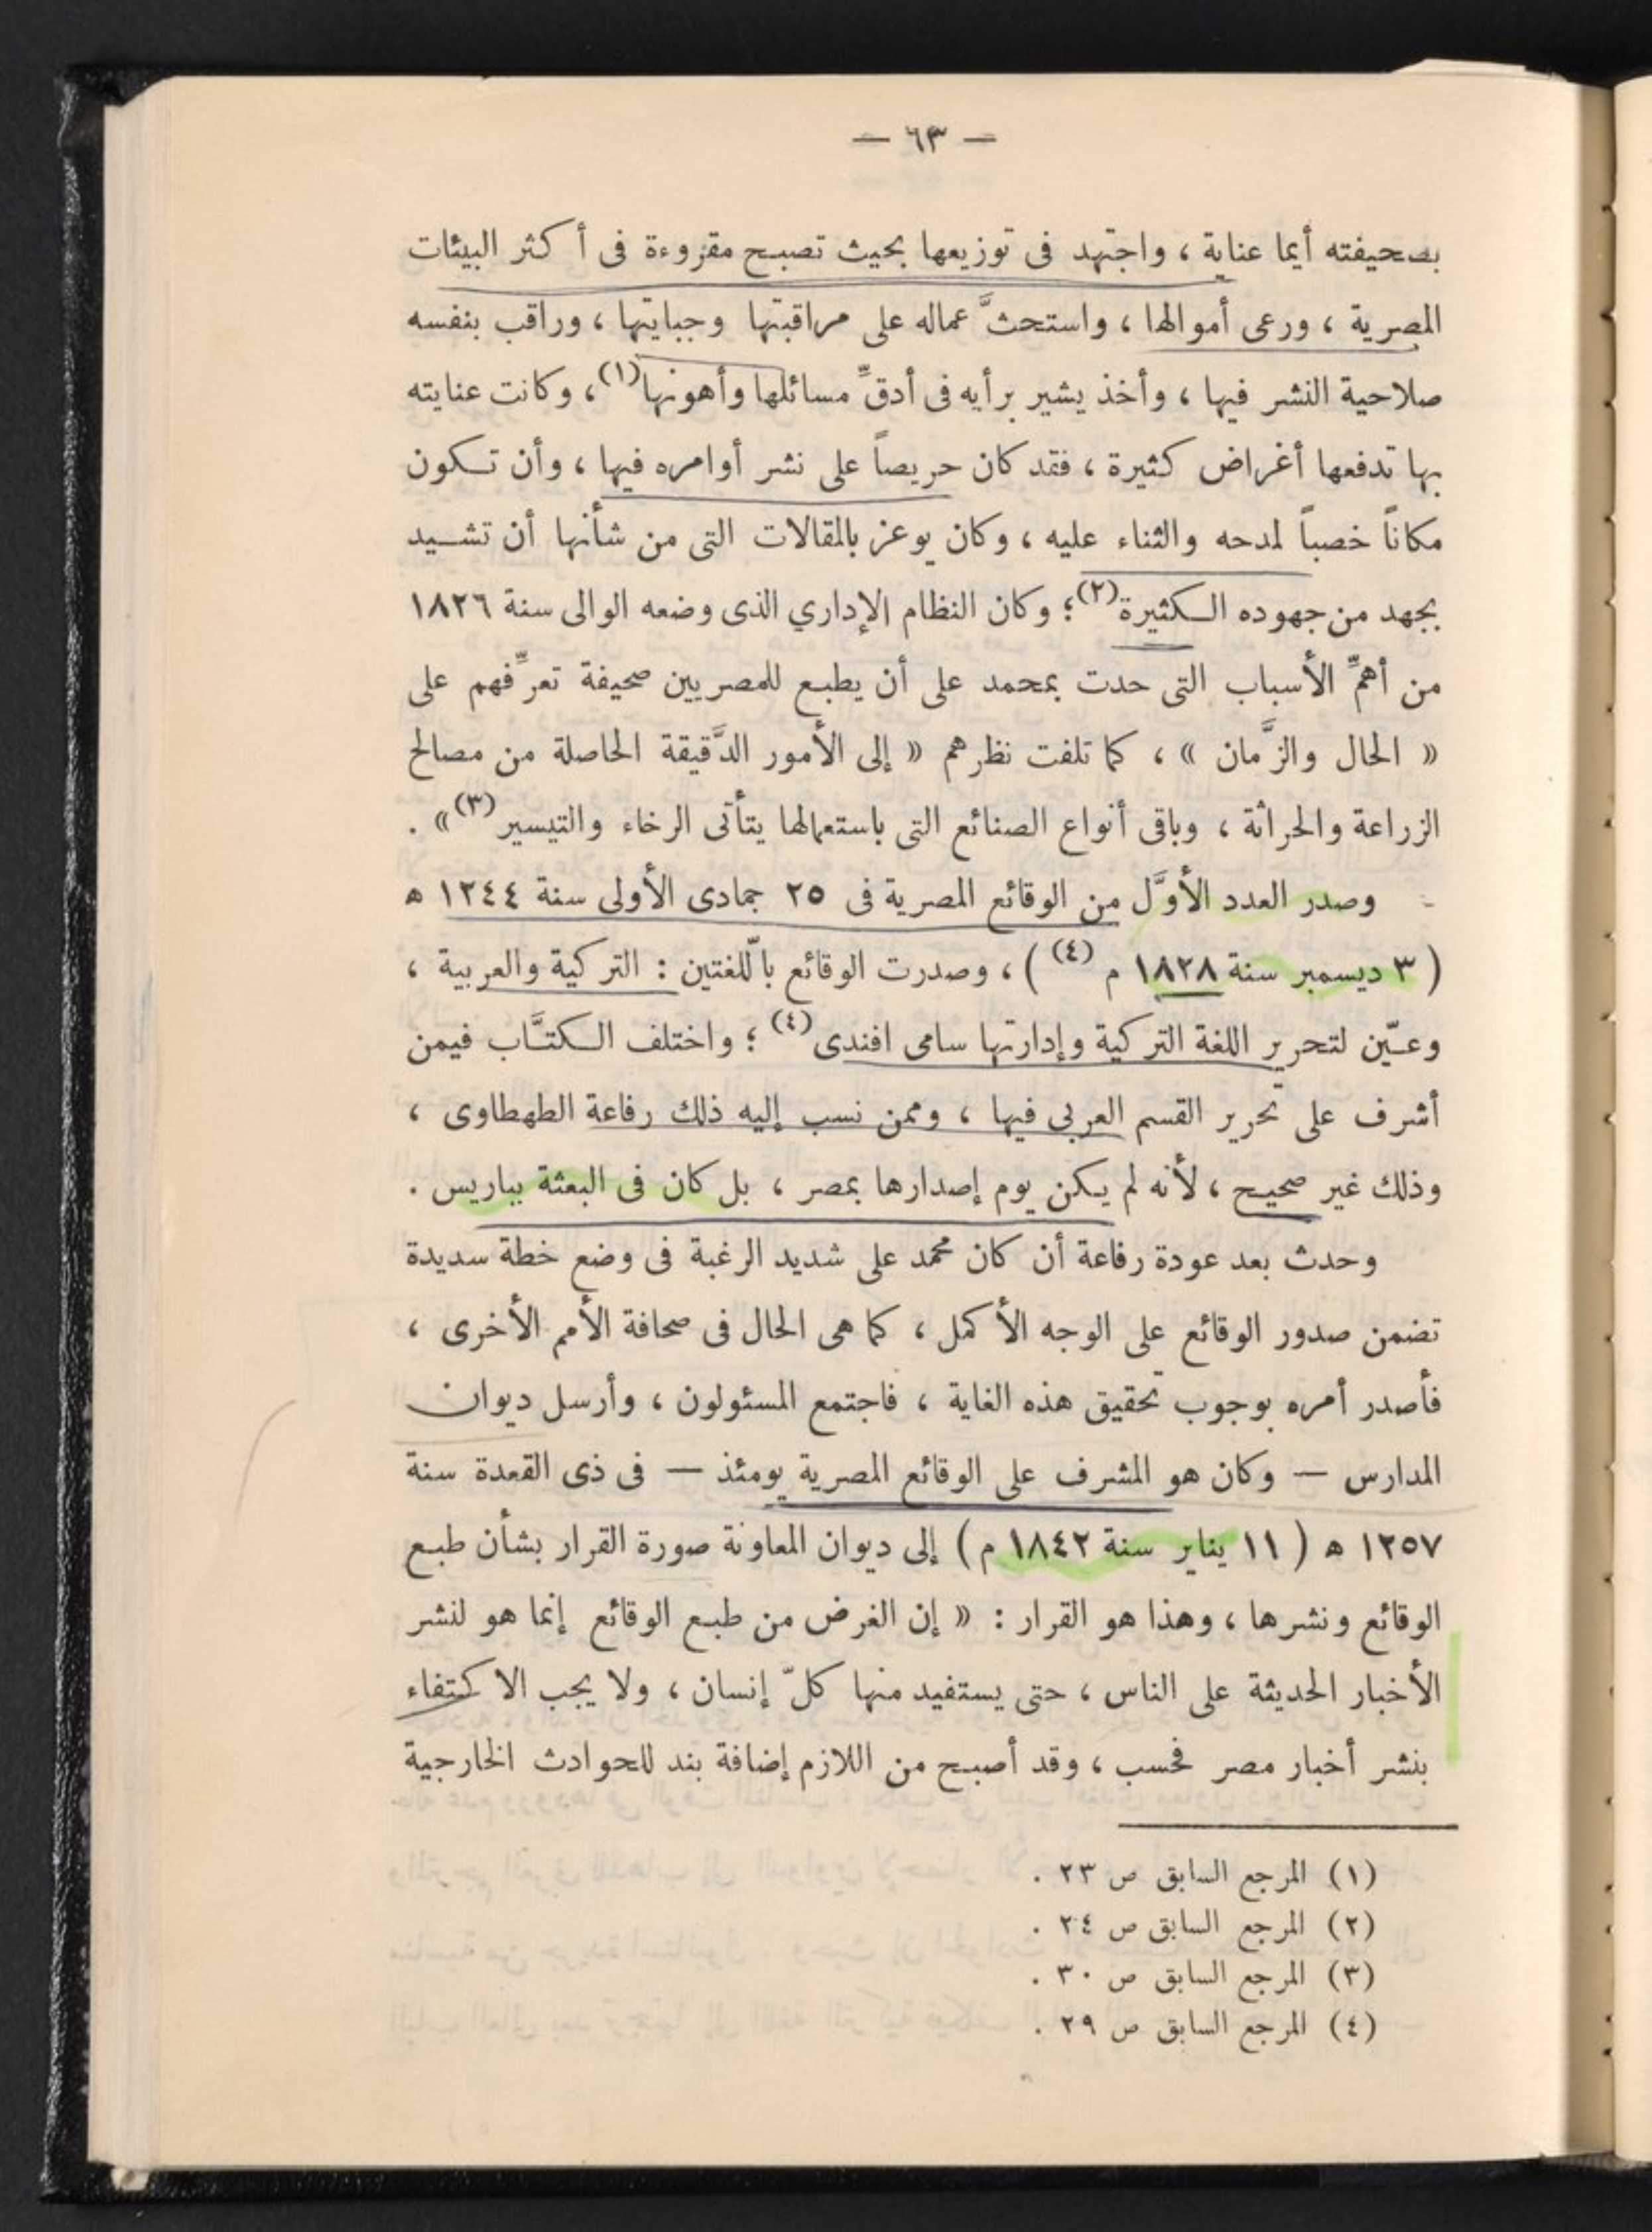 — ٦٣ —
بصحيفته أيما عناية ، واجتهد فى توزيعها بحيث تصبح مقروءة فى أكثر البيئات
المصرية ، ورعى أموالها ، واستحثَّ عماله على مراقبتها وجبايتها ، وراقب بنفسه
صلاحية النشر فيها ، وأخذ يشير برأيه فى أدقِّ مسائلها وأهونها(١) ، وكانت عنايته
بها تدفعها أغراض كثيرة ، فقد كان حريصاً على نشر أوامره فيها ، وأن تكون
مكاناً خصباً لمدحه والثناء عليه ، وكان يوعز بالمقالات التى من شأنها أن تشيد
بجهد من جهوده الكثيرة(٢) ؛ وكان النظام الإداري الذى وضعه الوالى سنة ١٨٢٦
من أهمِّ الأسباب التى حدت بمحمد على أن يطبع للمصريين صحيفة تعرِّفهم على
« الحال والزَّمان » ، كما تلفت نظرهم « إلى الأمور الدَّقيقة الحاصلة من مصالح
الزراعة والحراثة ، وباقى أنواع الصنائع التى باستعمالها يتأتى الرخاء والتيسير(٣) » .
وصدر العدد الأوَّل من الوقائع المصرية فى ٢٥ جمادى الأولى سنة ١٢٤٤ ه
( ٣ ديسمبر سنة ١٨٢٨ م (٤) ) ، وصدرت الوقائع باللّغتين : التركية والعربية ،
وعيّن لتحرير اللغة التركية وإدارتها سامى افندى(٤) ؛ واختلف الكتَّاب فيمن
أشرف على تحرير القسم العربى فيها ، وممن نسب إليه ذلك رفاعة الطهطاوى ،
وذلك غير صحيح ، لأنه لم يكن يوم إصدارها بمصر ، بل كان فى البعثة بباريس .
وحدث بعد عودة رفاعة أن كان محمد على شديد الرغبة فى وضع خطة سديدة
تضمن صدور الوقائع على الوجه الأكمل ، كما هى الحال فى صحافة الأمم الأخرى ،
فأصدر أمره بوجوب تحقيق هذه الغاية ، فاجتمع المسئولون ، وأرسل ديوان
المدارس — وكان هو المشرف على الوقائع المصرية يومئذ — فى ذى القعدة سنة
١٢٥٧ ه ( ١١ يناير سنة ١٨٤٢ م ) إلى ديوان المعاونة صورة القرار بشأن طبع
الوقائع ونشرها ، وهذا هو القرار : « إن الغرض من طبع الوقائع إنما هو لنشر
الأخبار الحديثة على الناس ، حتى يستفيد منها كلّ إنسان ، ولا يجب الاكتفاء
بنشر أخبار مصر فحسب ، وقد أصبح من اللازم إضافة بند للحوادث الخارجية
(١) المرجع السابق ص ٢٣ .
(٢) المرجع السابق ص ٢٤ .
(٣) المرجع السابق ص ٣٠ .
(٤) المرجع السابق ص ٢٩ .